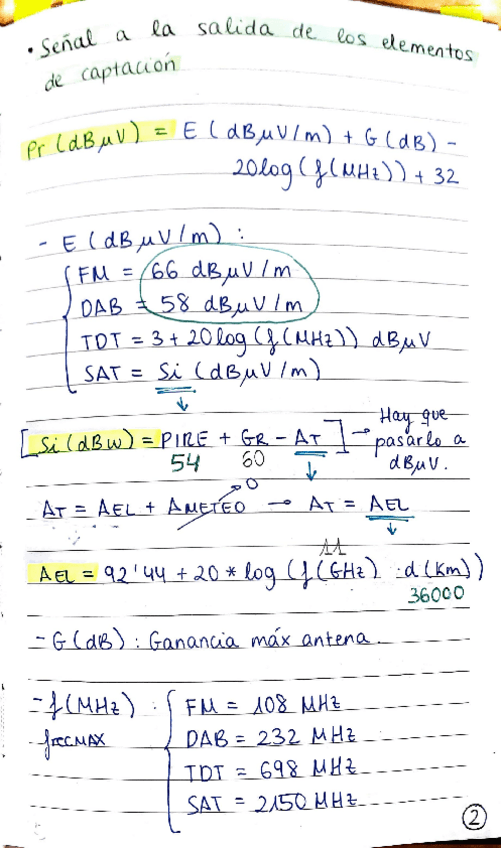 • Señal a la salida de los elementos
de captación
Pr (dBμV) = E (dBμV/m) + G (dB) -
20log (f(MHz)) + 32
- E (dBμV/m) :
FM = 66 dBμV/m
DAB = 58 dBμV/m
TDT = 3 + 20log (f(MHz)) dBμV
SAT = Si (dBμV/m)
↓
[Si (dBW) = PIRE + GR - AT] → Hay que pasarlo a dBμV.
54 60 ↓
AT = AEL + AMETEO → 0 → AT = AEL
↓
11
AEL = 92'44 + 20 * log (f(GHz) · d(Km))
36000
- G (dB) : Ganancia máx antena.
- f(MHz) : FM = 108 MHz
frecMAX DAB = 232 MHz
TDT = 698 MHz
SAT = 2150 MHz
2